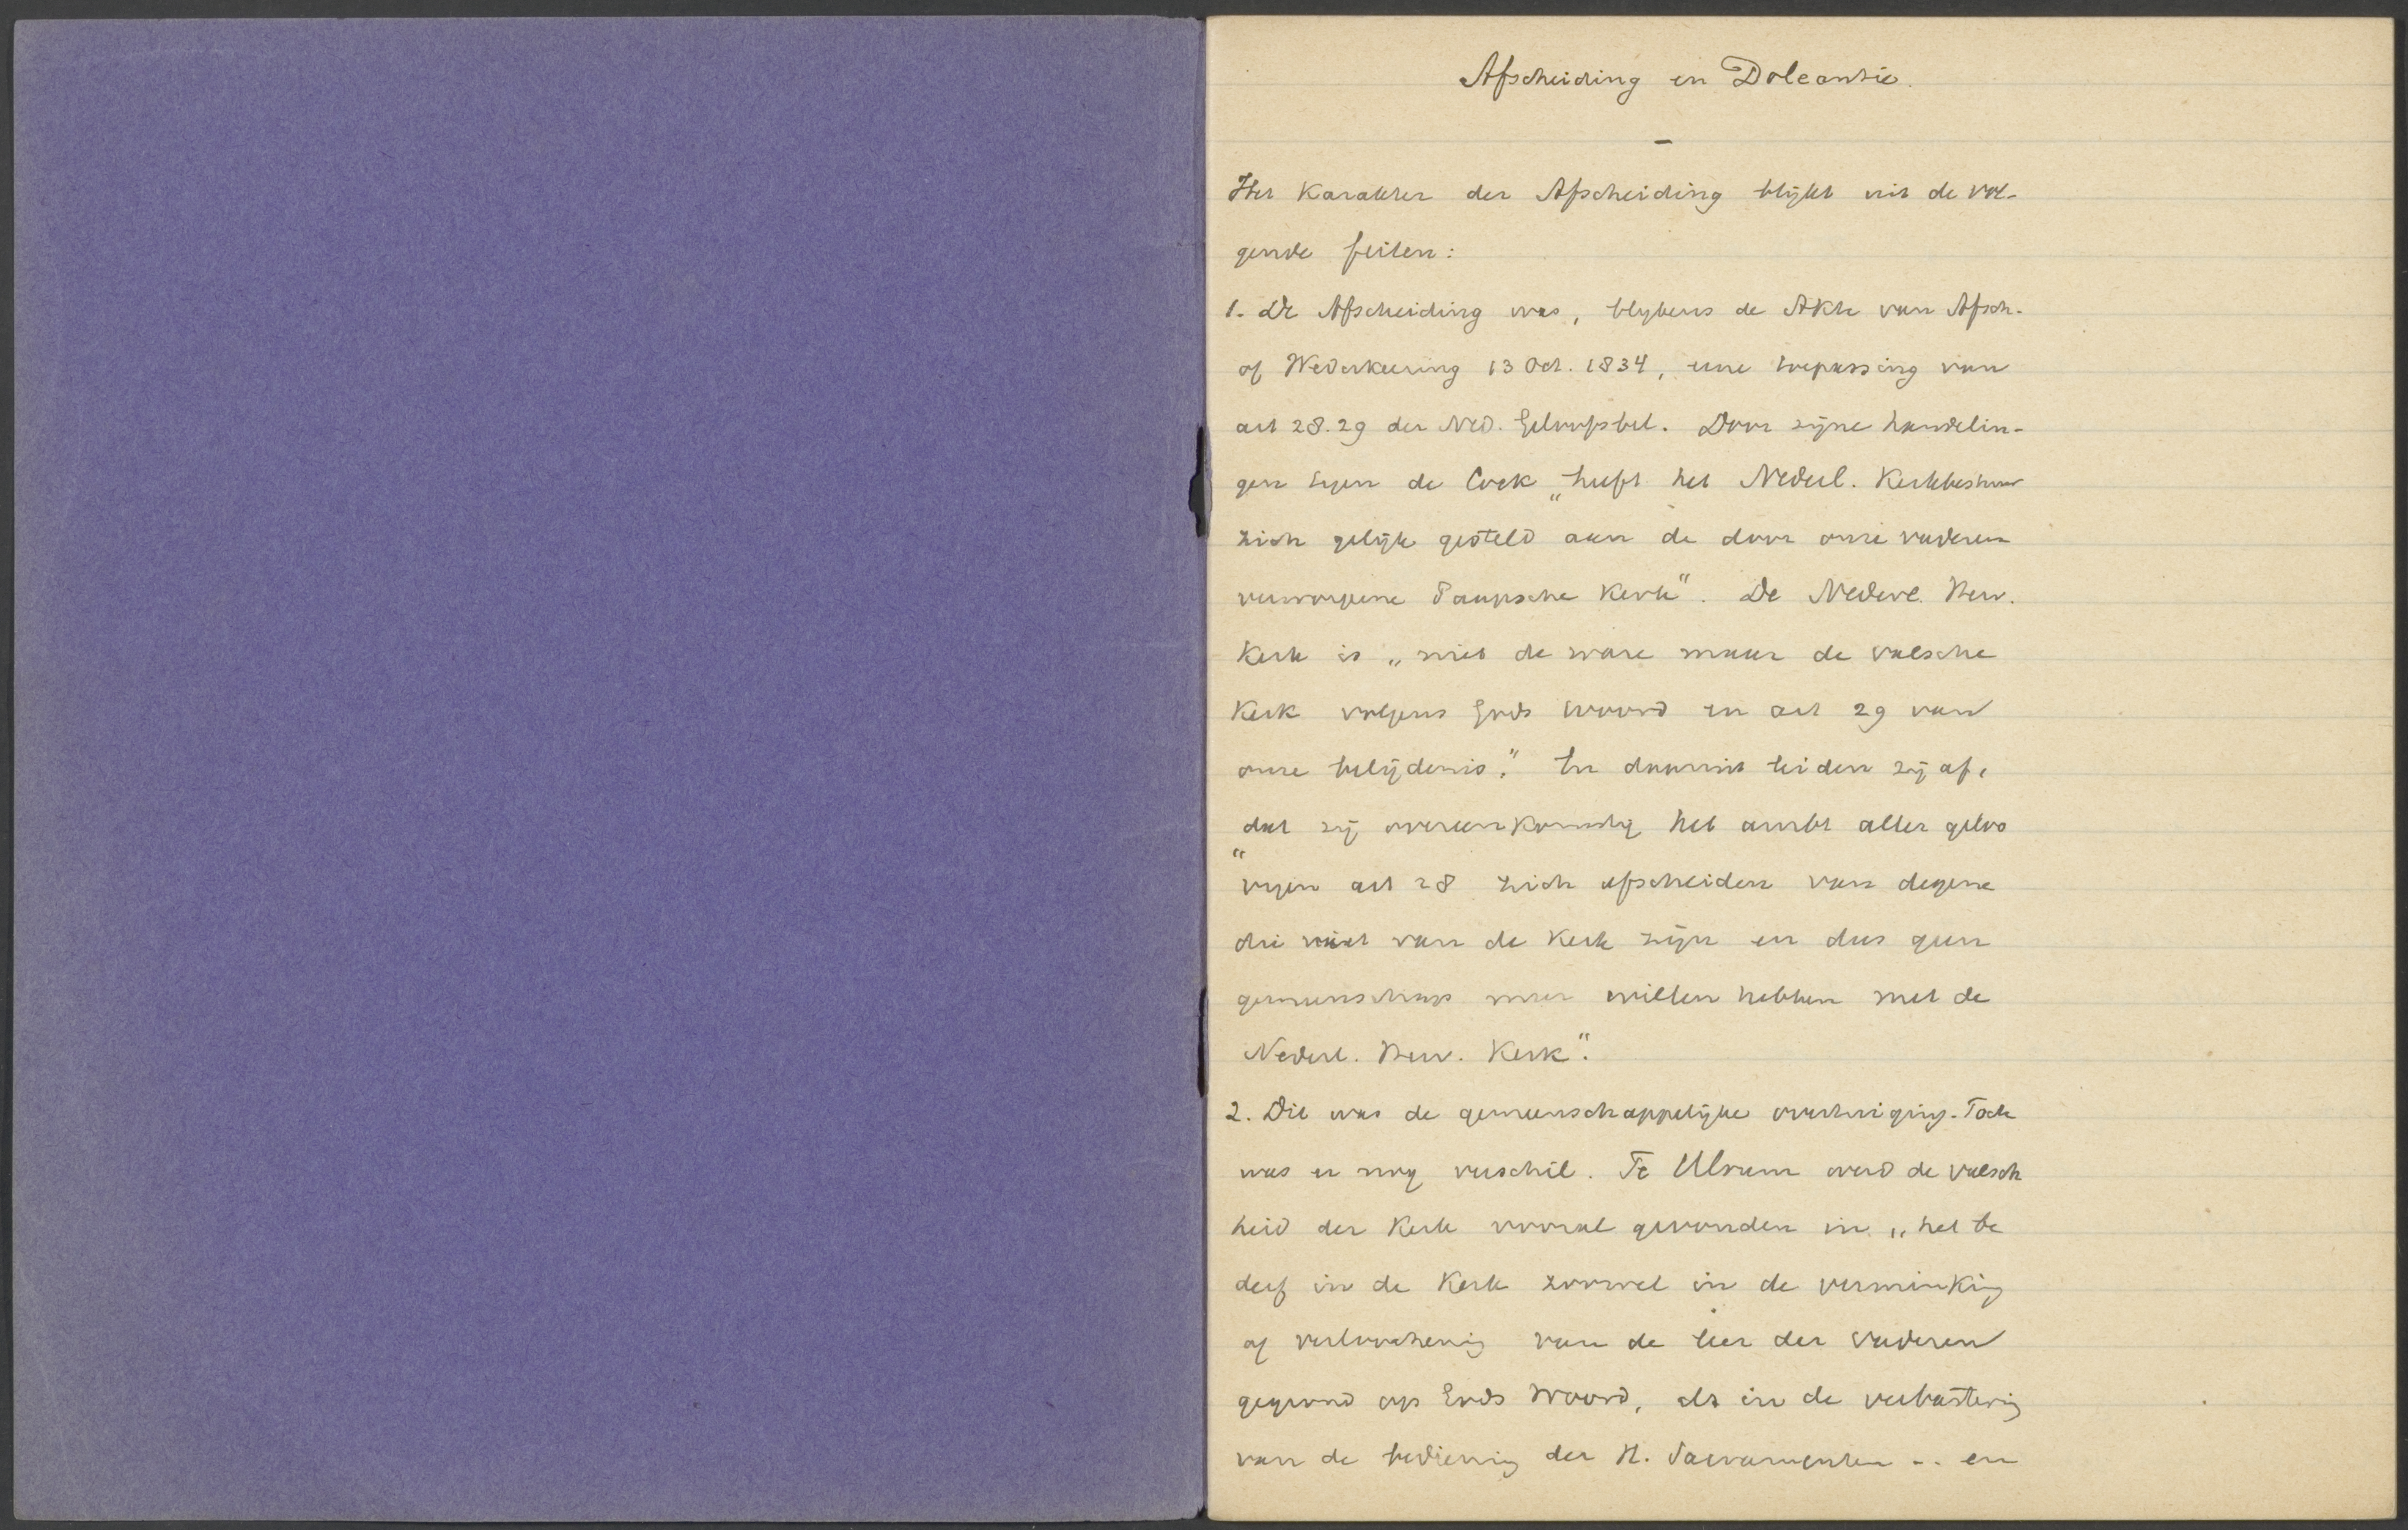 Afscheiding en Doleantie.
–
Het Karakter der Afscheiding blijkt uit de vol-
gende feiten:
1. De Afscheiding was, blykens de Akte van Afsch.
of Wederkeering 13 Oct. 1834, eene toepassing van
art 28. 29 der Ned. Geloofsbel. Door zijne handelin-
gen tegen de Cock „heeft het Nederl. Kerkbestuur
zich gelijk gesteld aan de door onze vaderen
verworpene Paapsche Kerk". De Nederl. Herv.
Kerk is „niet de ware maar de valsche
Kerk volgens Gods Woord en art 29 van
onze belijdenis." En daaruit leiden zij af,
dat zij overeenkomstig het ambt aller geloo
„vigen art 28 zich afscheiden van degene
die niet van de Kerk zijn en dus geen
gemeenschap meer willen hebben met de
Nederl. Herv. Kerk".
2. Dit was de gemeenschappelijke overtuiging. Toch
was er nog verschil. Te Ulrum werd de valsch
heid der Kerk vooral gevonden in „het be
derf in de Kerk zoowel in de verminking
of verloochening van de leer der vaderen
gegrond op Gods Woord, als in de verbastering
van de bediening der H. Sacramenten .. en